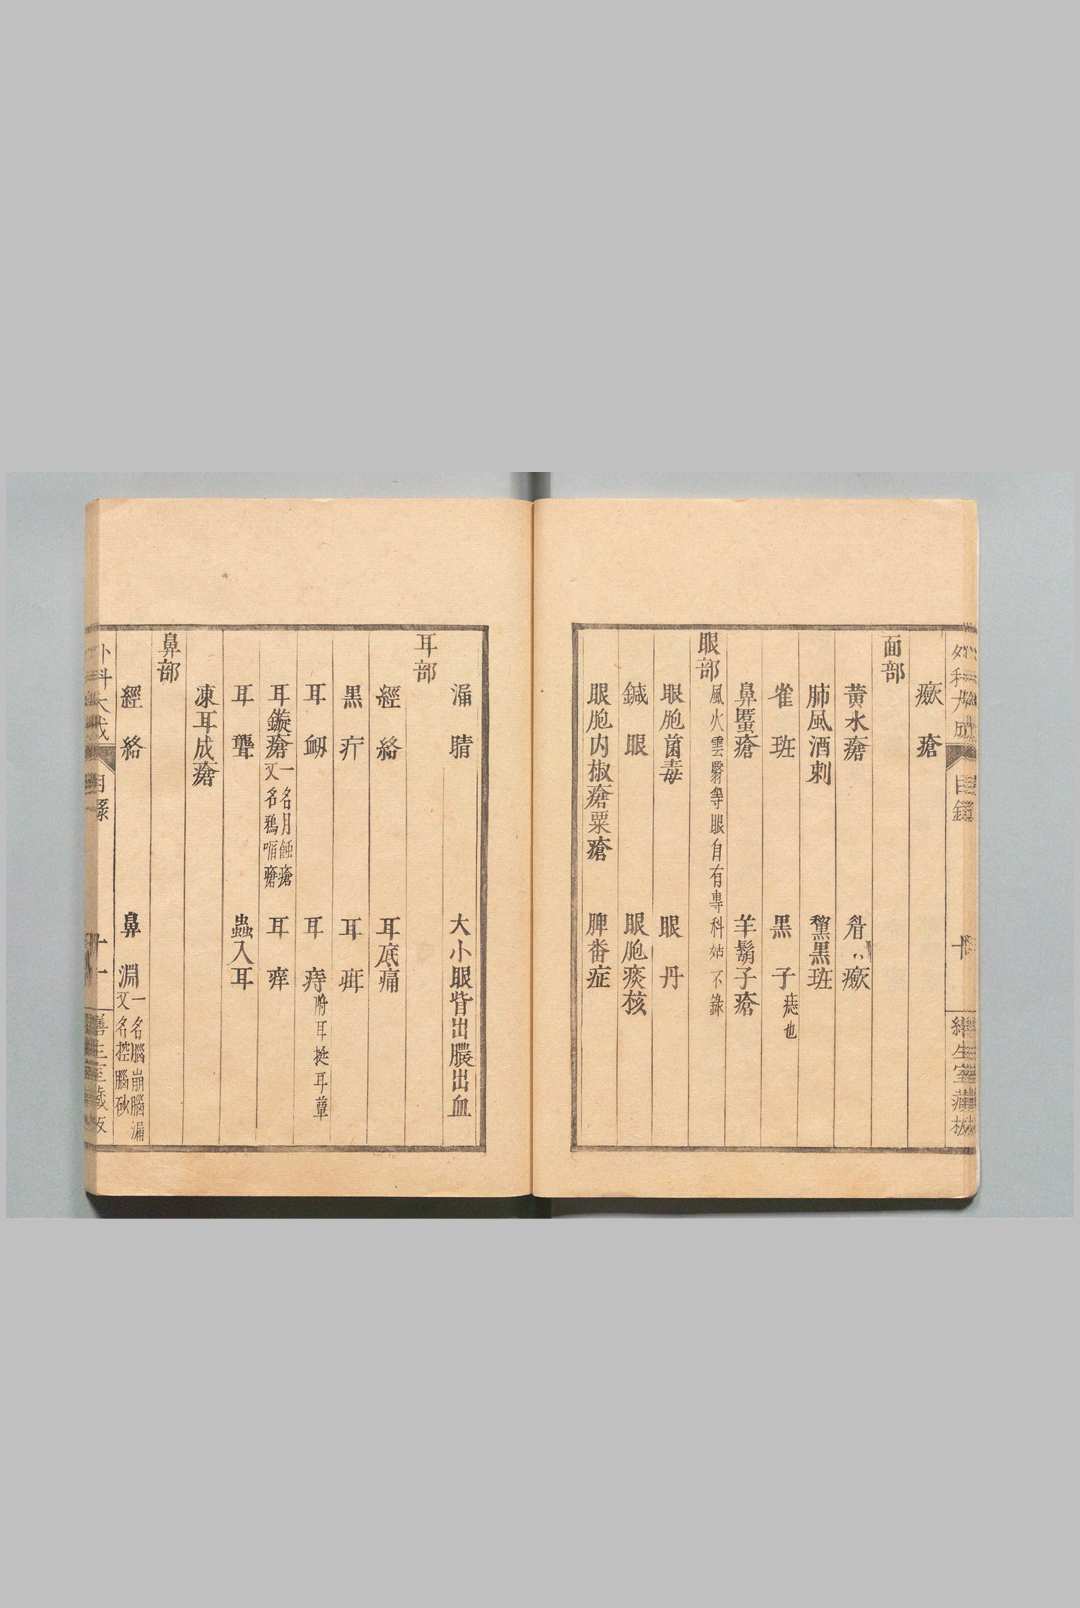 外科大成
目錄
十
瘚瘡
面部
黃水瘡
瘚
肺風酒刺
黧黑斑
雀斑
黑子痣也
鼻䘌瘡
羊鬍子瘡
眼部風火雲翳等眼自有專科姑不錄
眼胞菌毒
眼丹
鍼眼
眼胞痰核
眼胞內椒瘡粟瘡
脾番症
漏睛
大小眼眥出膿出血
耳部
經絡
耳底痛
黑疔
耳䘐
耳痔附耳挺耳蕈
耳鏇瘡一名月蝕瘡
又名鴉㗖瘡
耳痒
耳聾
蟲入耳
凍耳成瘡
鼻部
經絡
鼻淵一名腦崩腦漏
又名控腦砂
外科大成
目錄
十一
善生室藏板